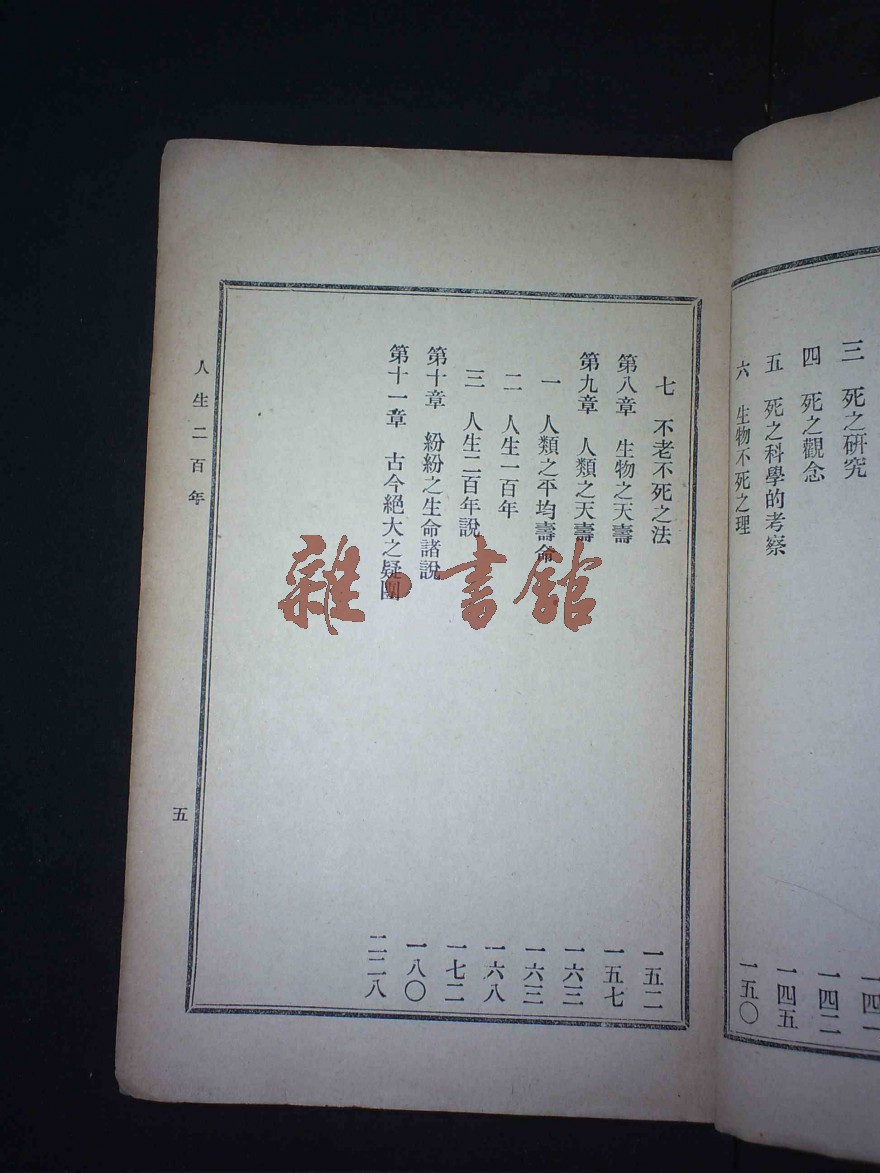 三　死之研究　一四一
四　死之觀念　一四二
五　死之科學的考察　一四五
六　生物不死之理　一五〇
七　不老不死之法　一五二
第八章　生物之天壽　一五七
第九章　人類之天壽　一六三
一　人類之平均壽命　一六三
二　人生一百年　一六八
三　人生二百年說　一七二
第十章　紛紛之生命諸說　一八〇
第十一章　古今絕大之疑團　二二八
人生二百年　五
雜·書館